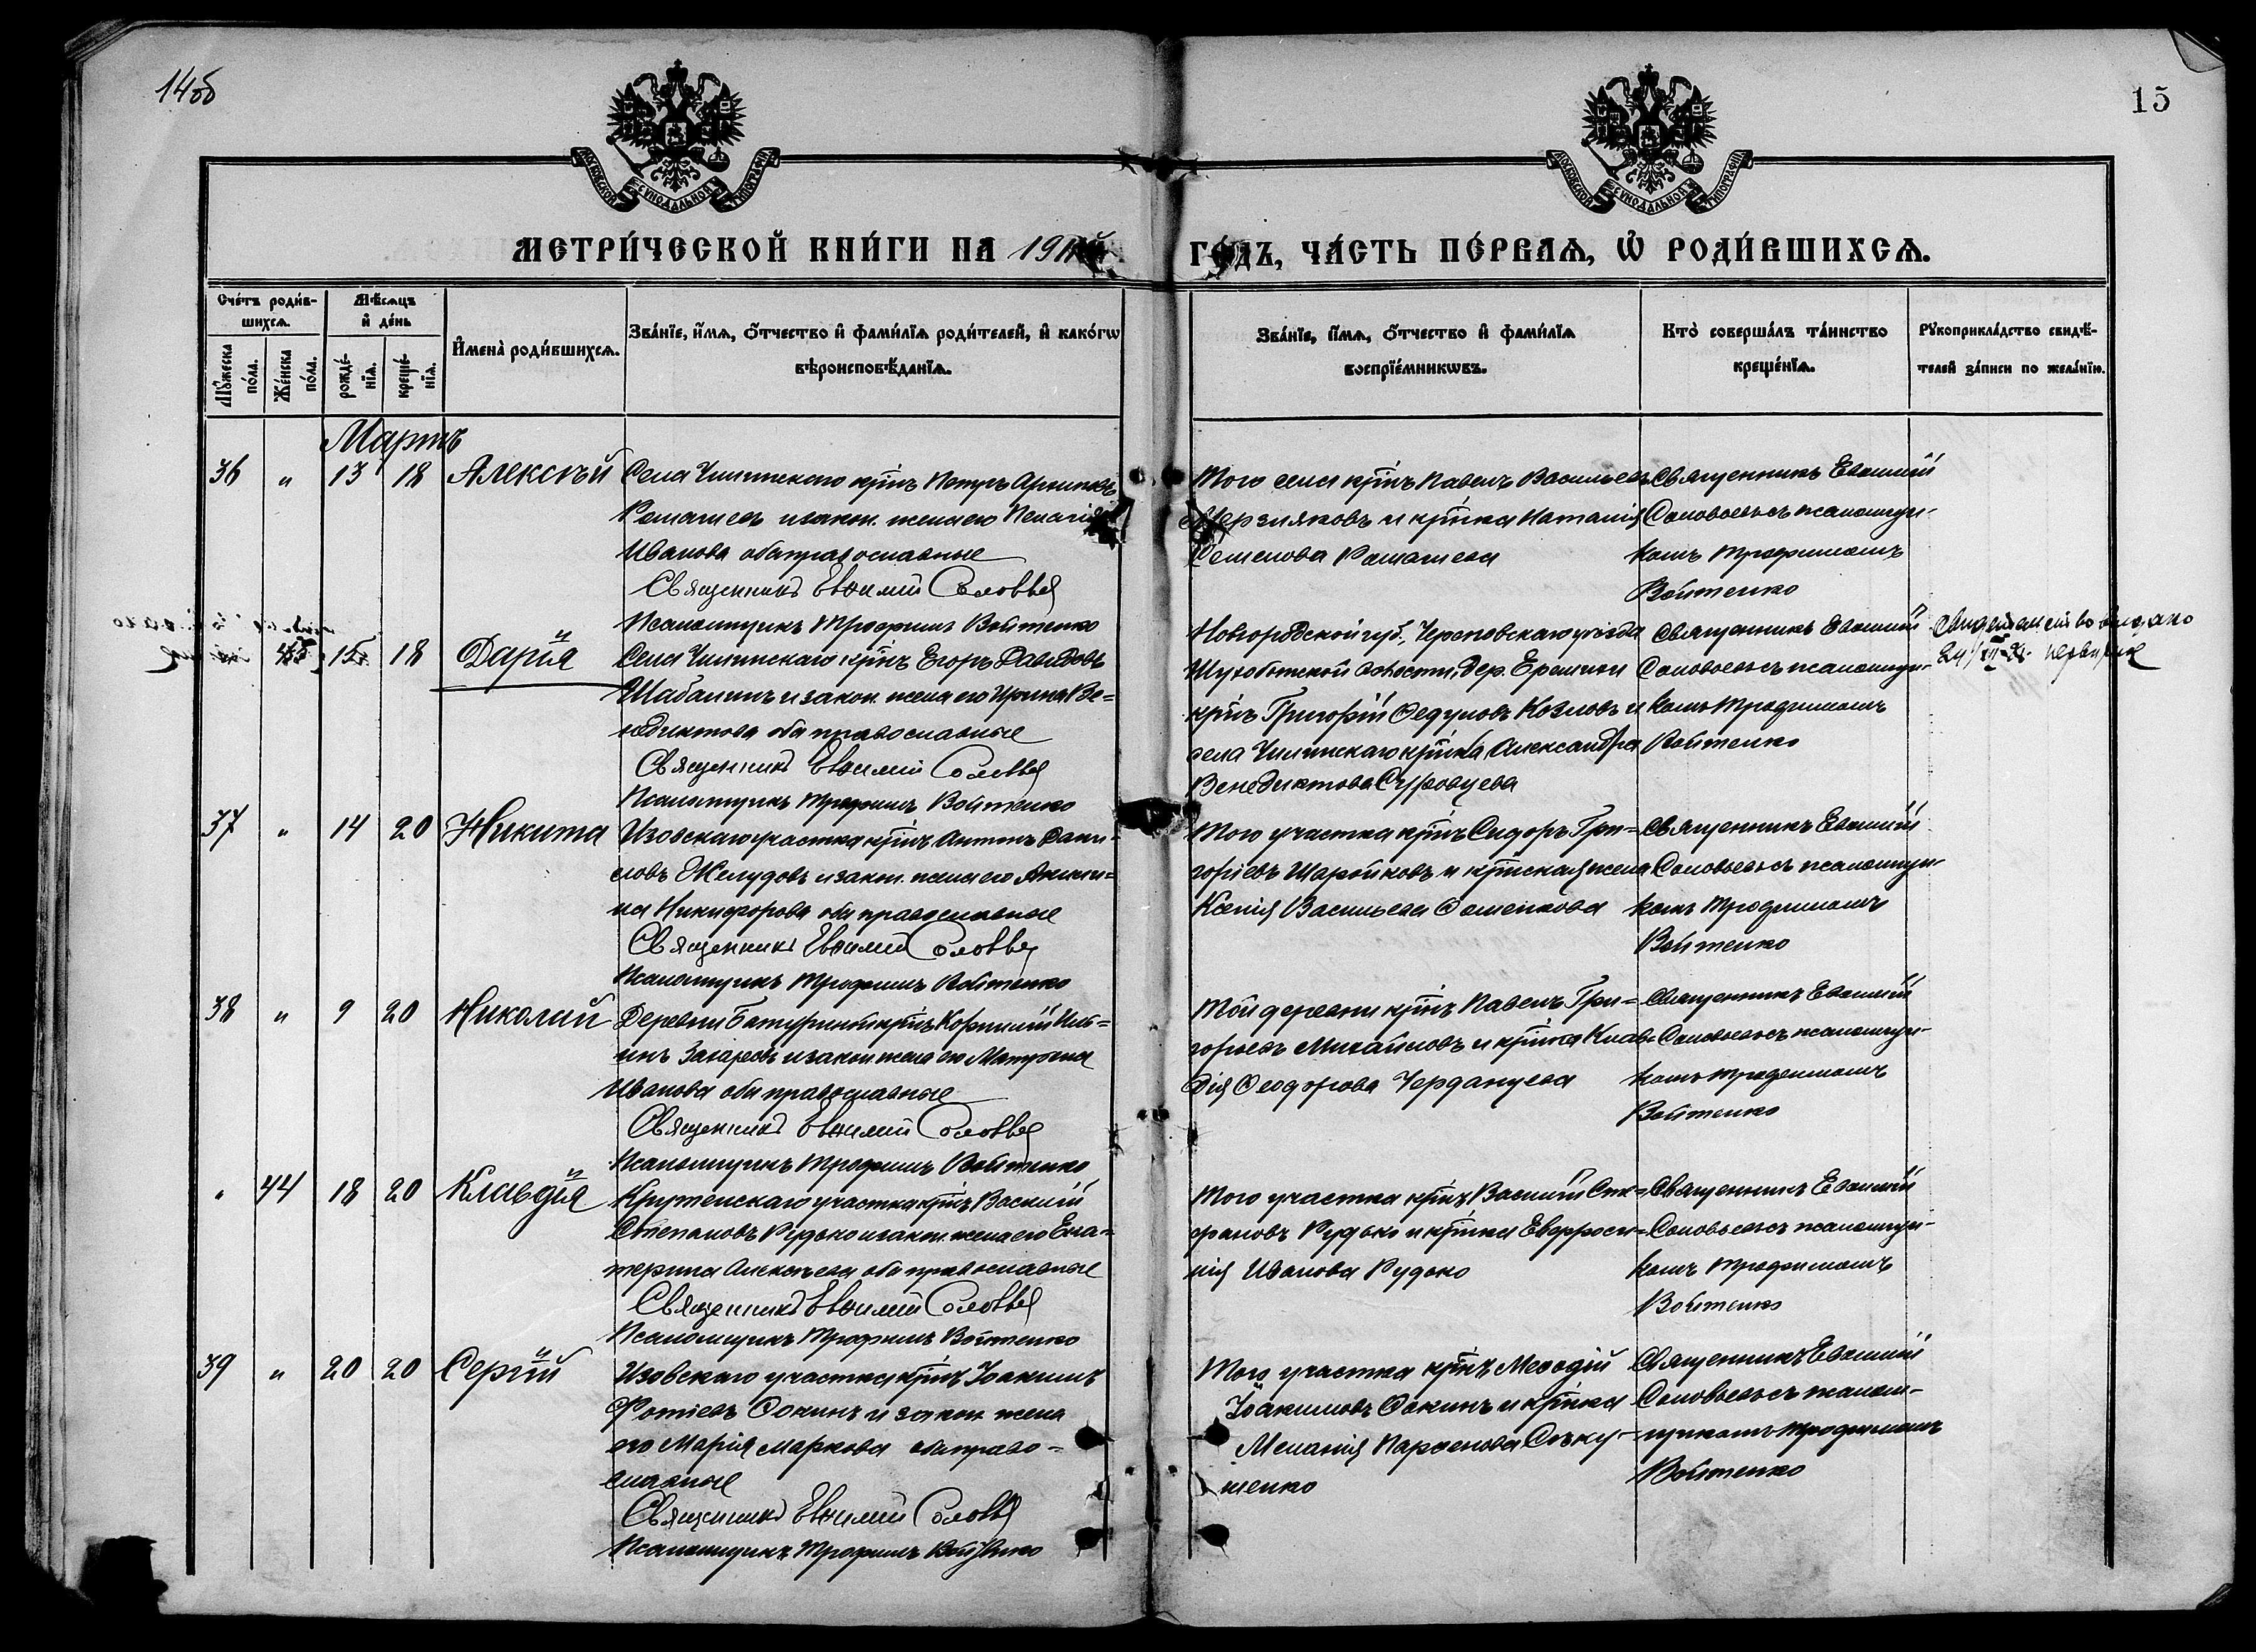 14об
15
МОСКОВСКОЙ СѴНОДАЛЬНОЙ ТИПОГРАФІИ
МОСКОВСКОЙ СѴНОДАЛЬНОЙ ТИПОГРАФІИ
МЕТРИ́ЧЕСКОЙ КНИ́ГИ НА 191
ГО́ДЪ, ЧА́СТЬ ПЕ́РВАѦ, Ѽ РОДИ́ВШИХСѦ.
Сче́тъ роди́в-
шихсѧ.
Мѣ́сѧцъ
и҆ де́нь
Мꙋ́жеска
по́ла.
Же́нска
по́ла.
рожде́-
нїѧ.
креще́-
нїѧ.
И҆мена̀ роди́вшихсѧ.
Зва́нїе, и҆́мѧ, ѻ҆́тчество и҆ фами́лїѧ роди́телей, и҆ како́гѡ
вѣроисповѣ́данїѧ.
Зва́нїе, и҆́мѧ, ѻ҆́тчество и҆ фами́лїѧ
воспрїе́мникѡвъ.
Кто̀ соверша́лъ та́инство
креще́нїѧ.
Рꙋкоприкла́дство свидѣ́-
телей за́писи по жела́нїю.
Мартъ
36 " 13 18 Алексѣй
Села Чилинскаго кр̃нъ Петръ Архиповъ
и закон. жена его Пелагія
Иванова оба православные
Священникъ Евѳимій Соловьев
Псаломщикъ Трофимъ Войтенко
Того села кр̃нъ Павелъ Васильевъ
Мерзляковъ и кр̃нка Наталія
Семенова
Священникъ Евѳимій
Соловьевъ съ псаломщи-
комъ Трофимомъ
Войтенко
18 Дарія
Села Чилинскаго кр̃нъ Егоръ Давидовъ
Шабалинъ и закон. жена его Ирина Ве-
недиктова оба православные
Священникъ Евѳимій Соловьев
Псаломщикъ Трофимъ Войтенко
Новгородской губ., Череповскаго уѣзда
волости, дер.
кр̃нъ Григорій Федуловъ Козловъ и
села Чилинскаго кр̃нка Александра
Венедиктова Суровцева
Священникъ Евѳимій
Соловьевъ съ псаломщи-
комъ Трофимомъ
Войтенко
Свидетельство выдано
37 " 14 20 Никита
Изовскаго участка кр̃нъ Антонъ Дани-
ловъ Желудовъ и закон. жена его Акили-
на Никифорова оба православные
Священникъ Евѳимій Соловьев
Псаломщикъ Трофимъ Войтенко
Того участка кр̃нъ Сидоръ Гри-
горіевъ Шаройковъ и кр̃нская жена
Ксенія Васильева Семенкова
Священникъ Евѳимій
Соловьевъ съ псаломщи-
комъ Трофимомъ
Войтенко
38 " 9 20 Николай
Деревни Батуриной кр̃нъ Корнилій Иль-
инъ Захаровъ и закон. жена его Матрона
Иванова оба православные
Священникъ Евѳимій Соловьев
Псаломщикъ Трофимъ Войтенко
Той деревни кр̃нъ Павелъ Гри-
горьевъ Михайловъ и кр̃нка Клав-
дія Ѳеодорова Черданцева
Священникъ Евѳимій
Соловьевъ съ псаломщи-
комъ Трофимомъ
Войтенко
" 44 18 20 Клавдія
Крутенскаго участка кр̃нъ Василій
Степановъ Рудько и закон. жена его Ека-
терина Алексѣева оба православные
Священникъ Евѳимій Соловьев
Псаломщикъ Трофимъ Войтенко
Того участка кр̃нъ Василій Сте-
фановъ Рудько и кр̃нка Евфроси-
нія Иванова Рудько
Священникъ Евѳимій
Соловьевъ съ псаломщи-
комъ Трофимомъ
Войтенко
39 " 20 20 Сергій
Изовскаго участка кр̃нъ Іоакимъ
Фотіевъ Сокинъ и закон. жена
его Марія Маркова оба право-
славные
Священникъ Евѳимій Соловьев
Псаломщикъ Трофимъ Войтенко
Того участка кр̃нъ Меѳодій
Іоакимовъ Сокинъ и кр̃нка
Меланія Парѳенова
Священникъ Евѳимій
Соловьевъ съ псалом-
щикомъ Трофимомъ
Войтенко